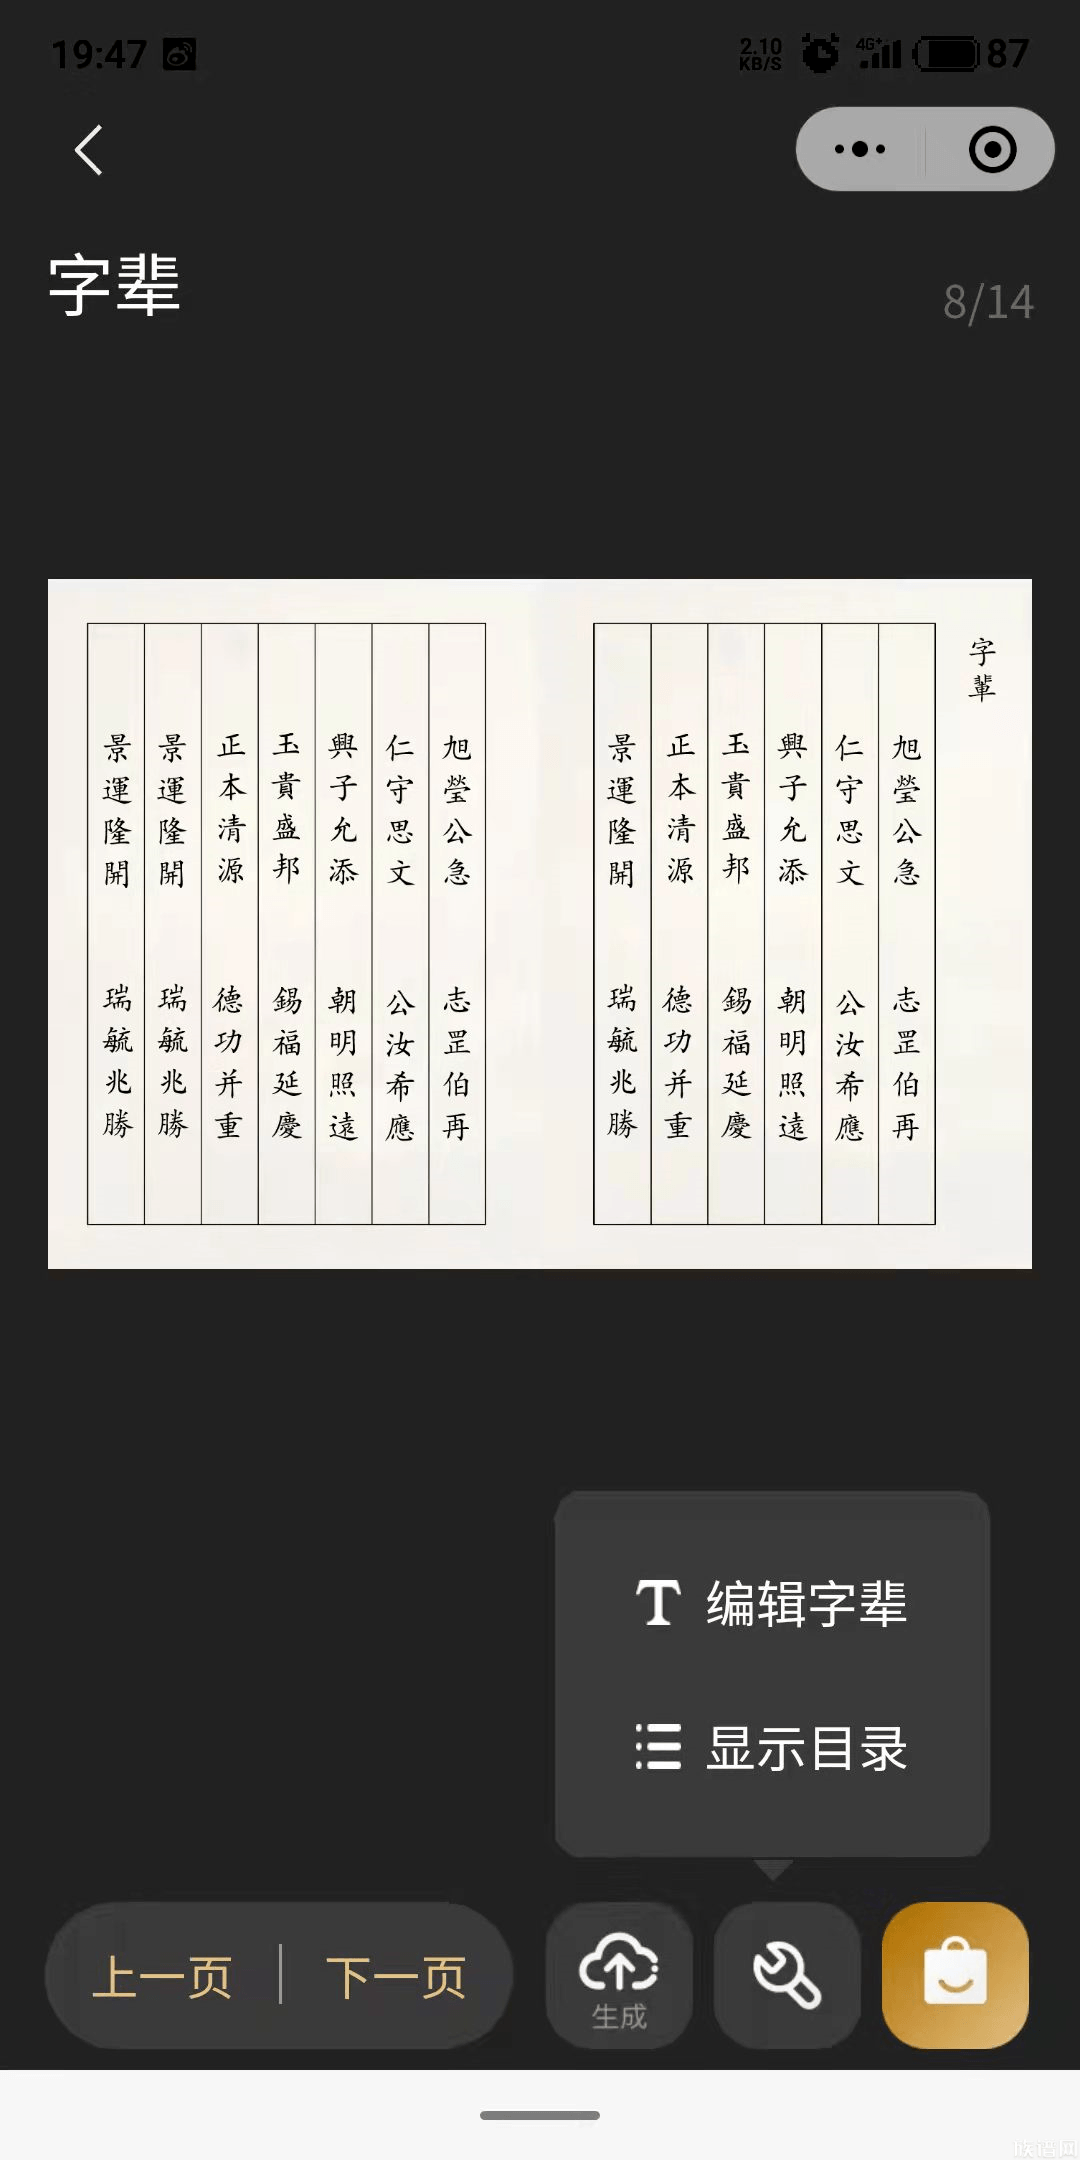 19:47
2.10
KB/S
4G+
87
字辈
8/14
字輩
旭瑩公急 志罡伯再
仁守思文 公汝希應
興子允添 朝明照遠
玉貴盛邦 錫福延慶
正本清源 德功并重
景運隆開 瑞毓兆勝
旭瑩公急 志罡伯再
仁守思文 公汝希應
興子允添 朝明照遠
玉貴盛邦 錫福延慶
正本清源 德功并重
景運隆開 瑞毓兆勝
景運隆開 瑞毓兆勝
编辑字辈
显示目录
上一页
下一页
生成
族谱网